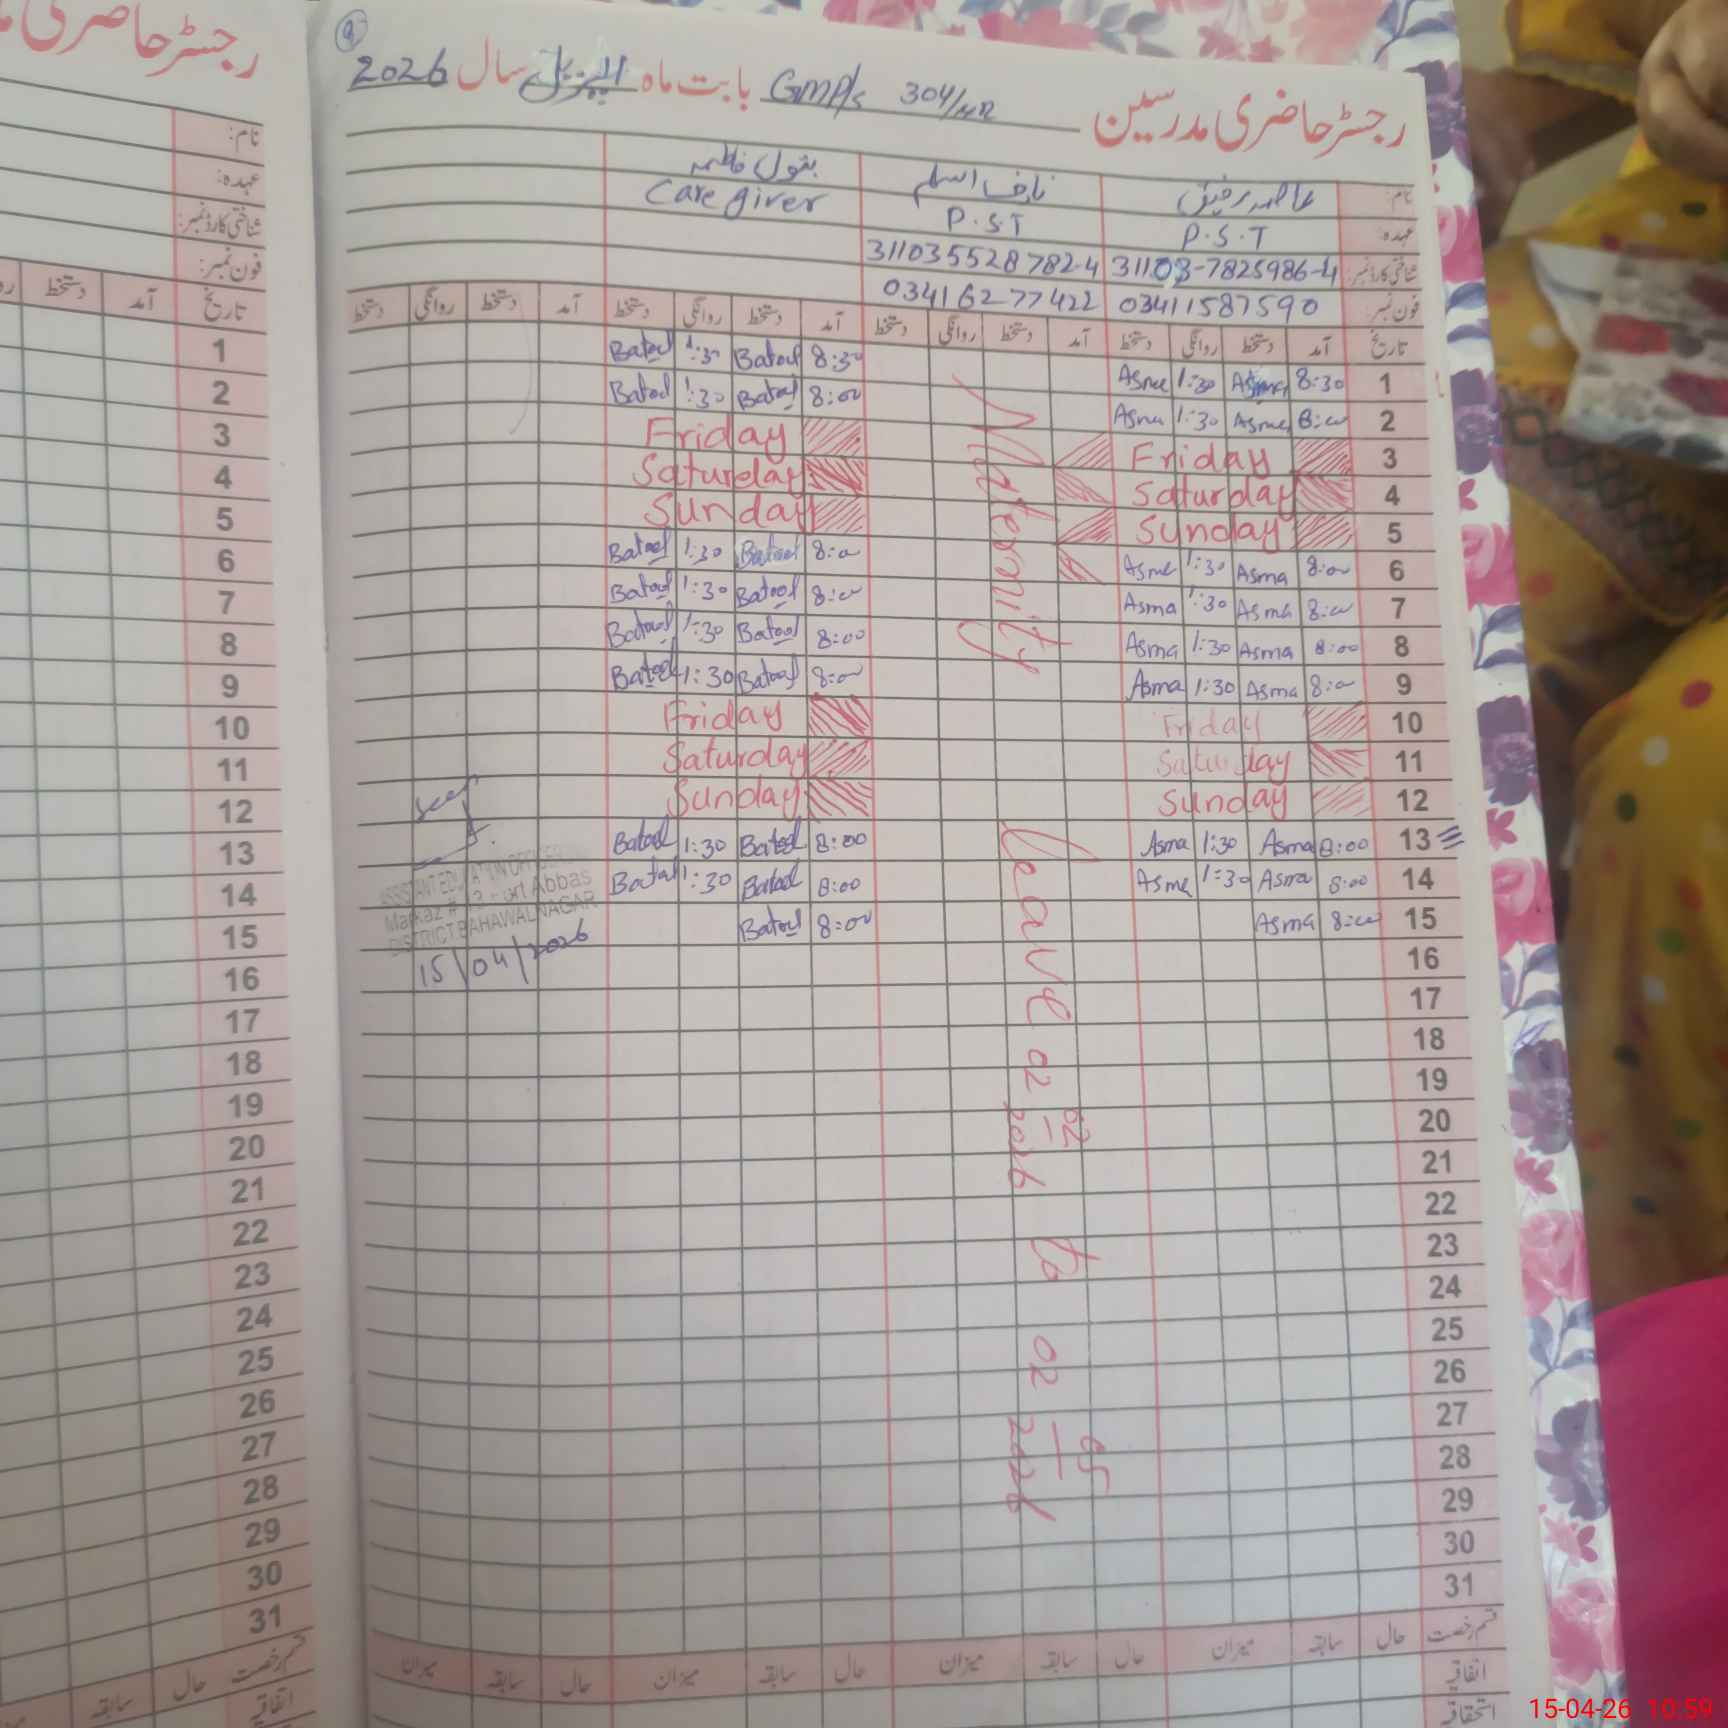 رجسٹر حاضری مدرسین GMP/s 304/HR بابت ماہ اپریل سال 2026
نام: عاصمہ رفیق نازف اسلم بتول فاطمہ
عہدہ: P.S.T P.S.T Care giver
شناختی کارڈ نمبر: 31103-7825986-4 311035528782-4
فون نمبر: 03411587590 03416277422
تاریخ آمد دستخط روانگی دستخط آمد دستخط روانگی دستخط آمد دستخط روانگی دستخط آمد دستخط روانگی دستخط
1 8:30 Asma 1:30 Asma 8:30 Batool 1:30 Batool
2 8:00 Asma 1:30 Asma 8:00 Batool 1:30 Batool
3 Friday Friday
4 Saturday Saturday
5 Sunday Sunday
6 8:00 Asma 1:30 Asma 8:00 Batool 1:30 Batool
7 8:00 Asma 1:30 Asma 8:00 Batool 1:30 Batool
8 8:00 Asma 1:30 Asma 8:00 Batool 1:30 Batool
9 8:00 Asma 1:30 Asma 8:00 Batool 1:30 Batool
10 Friday Friday
11 Saturday Saturday
12 Sunday Sunday
13 8:00 Asma 1:30 Asma 8:00 Batool 1:30 Batool
14 8:00 Asma 1:30 Asma 8:00 Batool 1:30 Batool
15 8:00 Asma 8:00 Batool
16
17
18
19
20
21
22
23
24
25
26
27
28
29
30
31
Maternity leave 02 02 2026 to 02 05 2026
ASSISTANT EDUCATION OFFICER
Markaz # Fort Abbas
DISTRICT BAHAWALNAGAR
15/04/2026
قسم رخصت حال سابقہ میزان حال سابقہ میزان حال سابقہ میزان حال سابقہ میزان
اتفاقیہ
استحقاقیہ
رجسٹر حاضری
نام:
عہدہ:
شناختی کارڈ نمبر:
فون نمبر:
تاریخ آمد دستخط
1
2
3
4
5
6
7
8
9
10
11
12
13
14
15
16
17
18
19
20
21
22
23
24
25
26
27
28
29
30
31
قسم رخصت حال سابقہ
اتفاقیہ
15-04-26 10:59